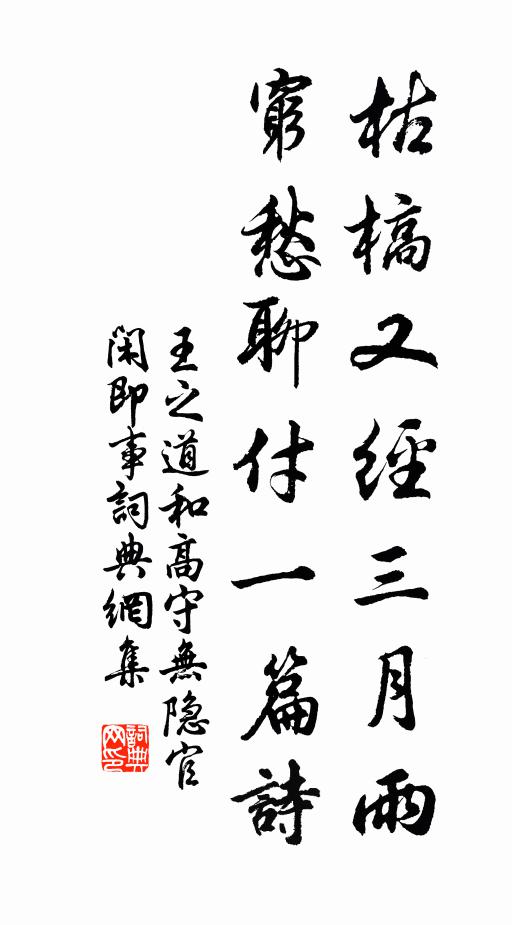 枯槁又經三月雨
窮愁聊付一篇詩
王之道和高守無隐官
闲即事詞典網集
詞典网印